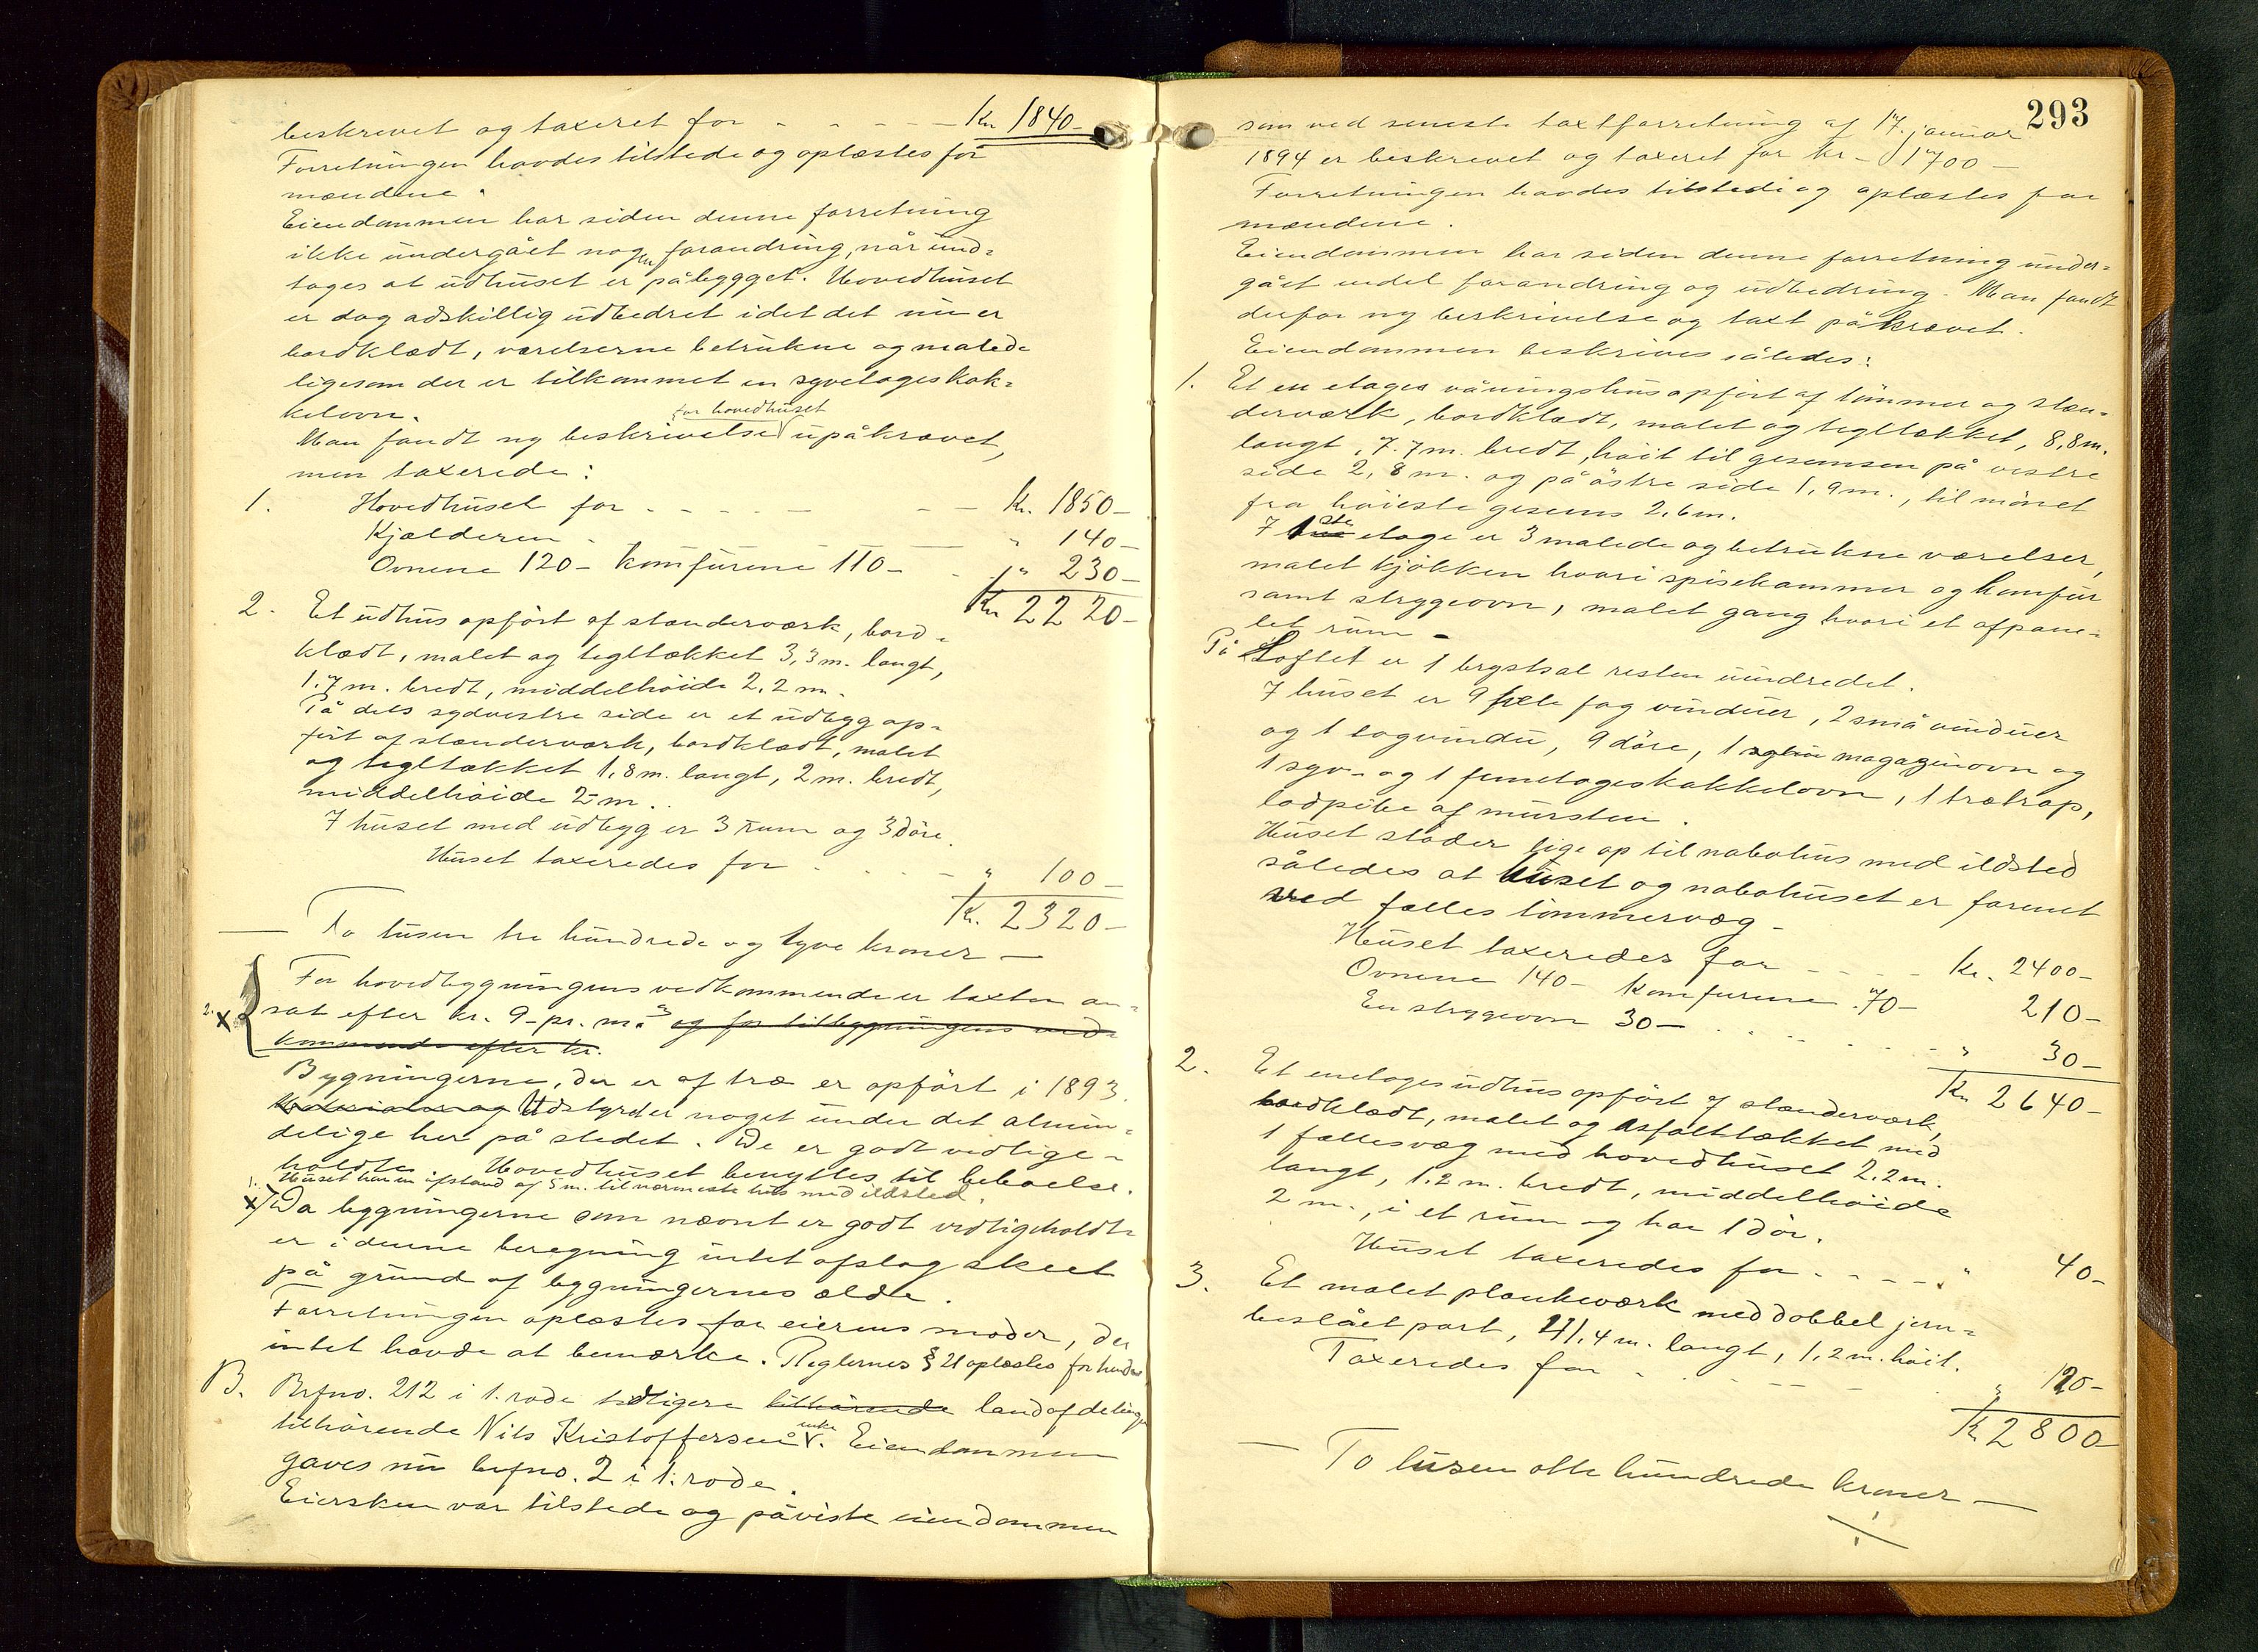 beskrevet og taxeret for - - - - - Kr. 1840-
Forretningen havdes tilstede og oplæstes for
mændene.
Eiendommen har siden denne forretning
ikke undergået nogen forandring, når und=
tages at udhuset er påbygget. Hovedhuset
er dog adskillig udbedret idet det nu er
bordklædt, værelserne betrukne og malede
ligesom der er tilkommet en syvetageskak=
kelovn.
for hovedhuset
Man fandt ny beskrivelse upåkrævet,
men taxerede:
1. Hovedhuset for - - - - - - kr. 1850-
Kjælderen - " 140-
Ovnene 120- komfurene 110- " 230-
Kr 2220-
2. Et udhus opført af standerværk, bord-
klædt, malet og tegltækket 3,3 m. langt,
1.7 m. bredt, middelhøide 2,2 m.
På dets sydvestre side er et udbygg op-
ført af standerværk, bordklædt, malet
og tegltækket 1,8 m. langt, 2 m. bredt,
middelhøide 2 m.
I huset med udbyg er 3 rum og 3 døre.
Huset taxeredes for - - - - " 100-
Kr. 2320-
— To tusen tre hundrede og tyve kroner —
For hovedbygningens vedkommende er taxten an-
2. x sat efter kr. 9- pr. m.³ og for tilbygningens ved-
kommende efter kr.
Bygningerne, der er af træ er opført i 1893.
Materialer og Udstyret er noget under det almin-
delige her på stedet. De er godt vedlige-
holdte. Hovedhuset benyttes til beboelse.
1. Huset har en afstand af 5 m. til nærmeste hus med ildsted.
x) Da bygningerne som nævnt er godt vedligeholdte
er i denne beregning intet afslag skeet
på grund af bygningernes ælde.
Forretningen oplæstes for eierens moder, der
intet havde at bemærke. Reglernes § 21 oplæstes for hende
B. Brfno. 212 i 1. rode tidligere tilhørende landafdelingen
tilhørende Nils Kristoffersens enke. Eiendommen
gaves nu brfno. 2 i 1. rode.
Eiersken var tilstede og påviste eiendommen
293
som ved seneste taxtforretning af 17. januar
1894 er beskrevet og taxeret for kr - 1700-
Forretningen havdes tilstede og oplæstes for
mændene.
Eiendommen har siden denne forretning under=
gået endel forandring og udbedring. Man fandt
derfor ny beskrivelse og taxt påkrævet.
Eiendommen beskrives således:
1. Et en etages våningshus opført af tømmer og stæn=
derværk, bordklædt, malet og tegltækket, 8,8 m.
langt, 7.7 m. bredt, høit til gesemsen på vestre
side 2,8 m. og på østre side 1,9 m., til mønet
fra høieste gesems 2.6 m.
I 1ste etage er 3 malede og betrukne værelser,
malet kjøkken hvori spisekammer og komfur
samt strygeovn, malet gang hvori et afpane-
let rum -
På Loftet er 1 brystsal resten uindredet.
I huset er 9 hele fag vinduer, 2 små vinduer
og 1 tagvindu, 9 døre, 1 magazinovn og
1 syv- og 1 femetageskakkelovn, 1 trætrap,
lodpibe af mursten.
Huset støder lige op til nabohus med ildsted
således at huset og nabohuset er forenet
ved fælles tømmervæg -
Huset taxeredes for - - - - Kr. 2400-
Ovnene 140- komfurene 70- 210-
En strygeovn 30- - - - - - " 30-
Kr 2640-
2. Et enetages udhus opført af standerværk,
bordklædt, malet og asfalttækket med
1 fællesvæg med hovedhuset 2.2 m.
langt, 1.2 m. bredt, middelhøide
2 m., i et rum og har 1 dør.
Huset taxeredes for - - - - " 40-
3. Et malet plankeværk med dobbel jern=
beslået port, 41.4 m. langt, 1,2 m. høit.
Taxeredes for - - - - - " 120-
Kr 2800
— To tusen otte hundrede kroner —